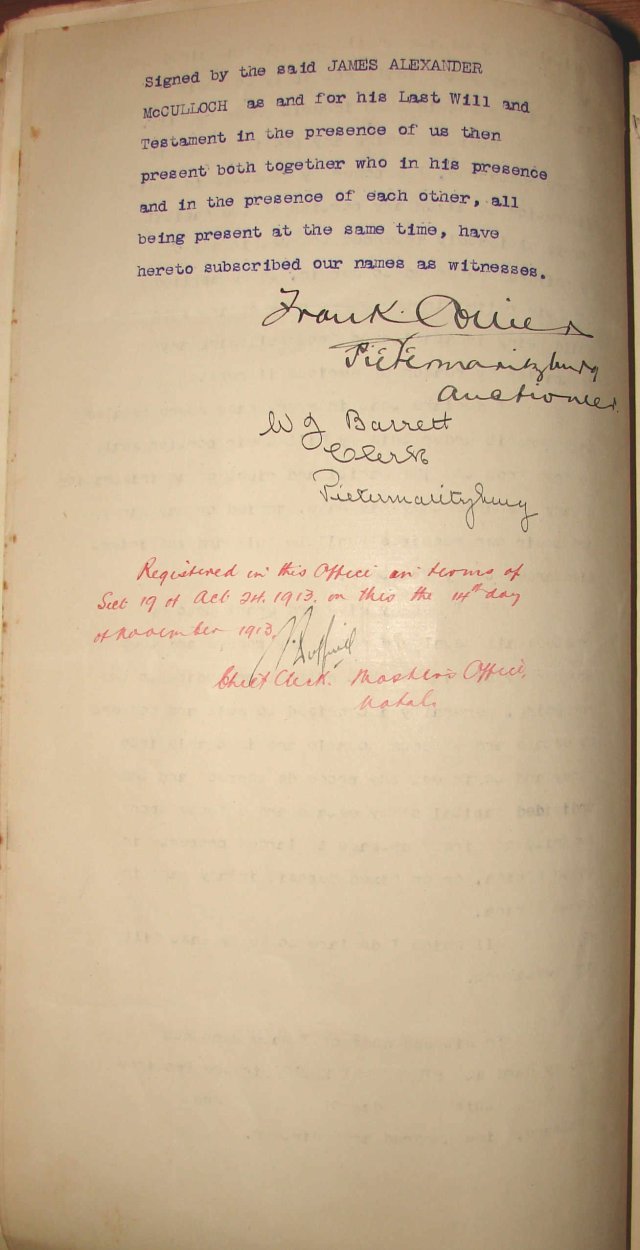 Signed by the said JAMES ALEXANDER
McCULLOCH as and for his Last Will and
Testament in the presence of us then
present both together who in his presence
and in the presence of each other, all
being present at the same time, have
hereto subscribed our names as witnesses.
Frank
Pietermaritzburg
Auctioneer.
W J Barrett
Clerk
Pietermaritzburg
Registered in this Office in terms of
Sect 19 of Act 24. 1913. on this the 14th day
of November 1913.
Chief Clerk. Master's Office,
Natal.